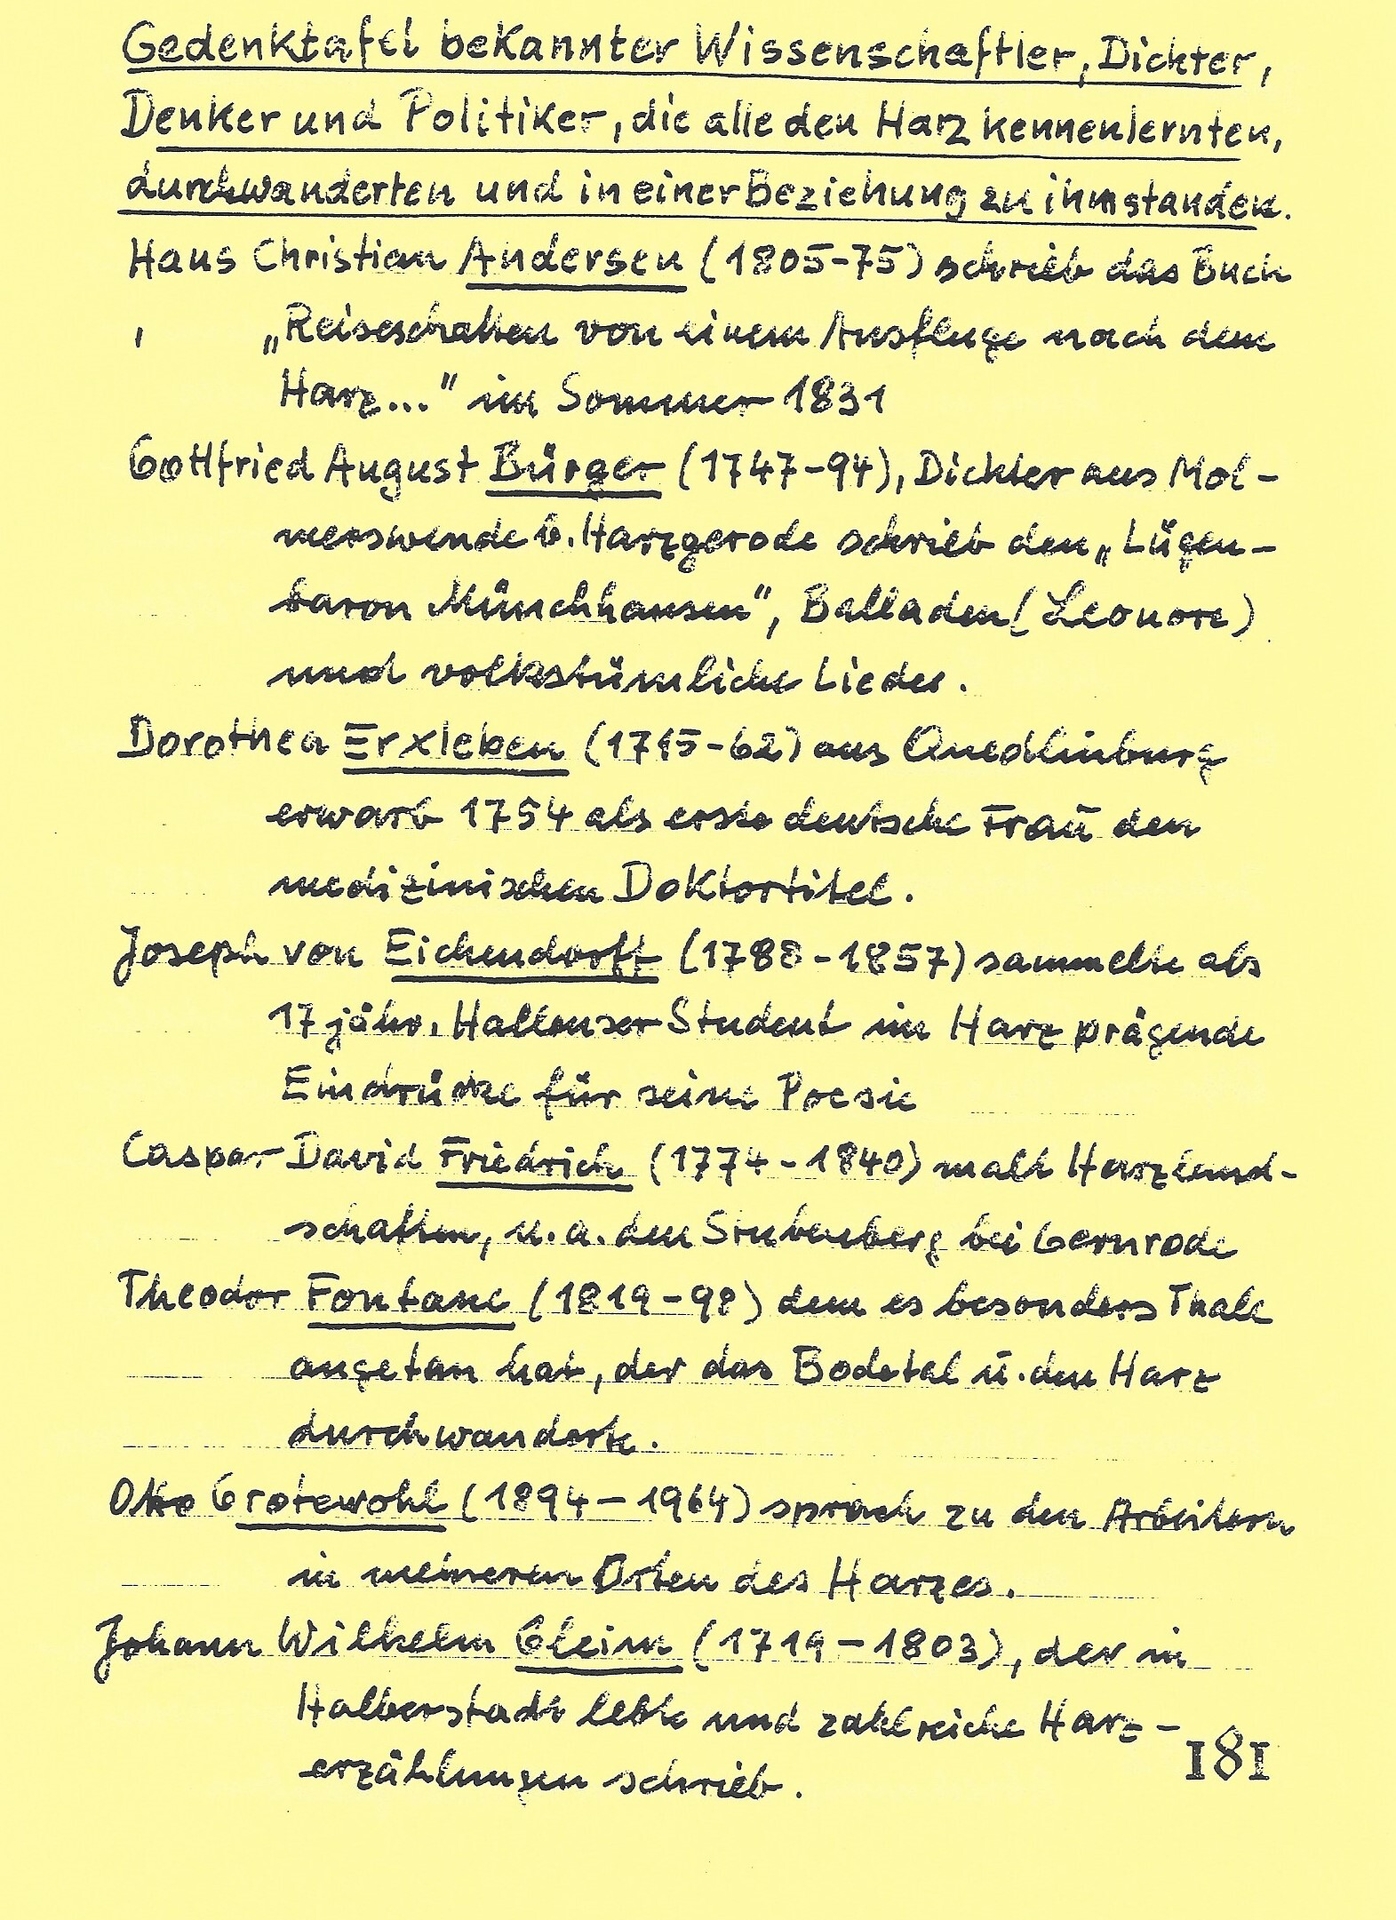 Gedenktafel bekannter Wissenschaftler, Dichter,
Denker und Politiker, die alle den Harz kennenlernten,
durchwanderten und in einer Beziehung zu ihm standen.
Hans Christian Andersen (1805-75) schrieb das Buch
„Reiseschatten von einem Ausfluge nach dem
Harz..." im Sommer 1831
Gottfried August Bürger (1747-94), Dichter aus Mol-
merswende b. Harzgerode schrieb den „Lügen-
baron Münchhausen", Balladen (Leonore)
und volkstümliche Lieder.
Dorothea Erxleben (1715-62) aus Quedlinburg
erwarb 1754 als erste deutsche Frau den
medizinischen Doktortitel.
Joseph von Eichendorff (1788-1857) sammelte als
17 jähr. Hallenser Student im Harz prägende
Eindrücke für seine Poesie
Caspar David Friedrich (1774-1840) malt Harzland-
schaften, u.a. den Stubenberg bei Gernrode
Theodor Fontane (1819-98) dem es besonders Thale
angetan hat, der das Bodetal u. den Harz
durchwanderte.
Otto Grotewohl (1894-1964) sprach zu den Arbeitern
in mehreren Orten des Harzes.
Johann Wilhelm Gleim (1719-1803), der in
Halberstadt lebte und zahlreiche Harz-
erzählungen schrieb.
181